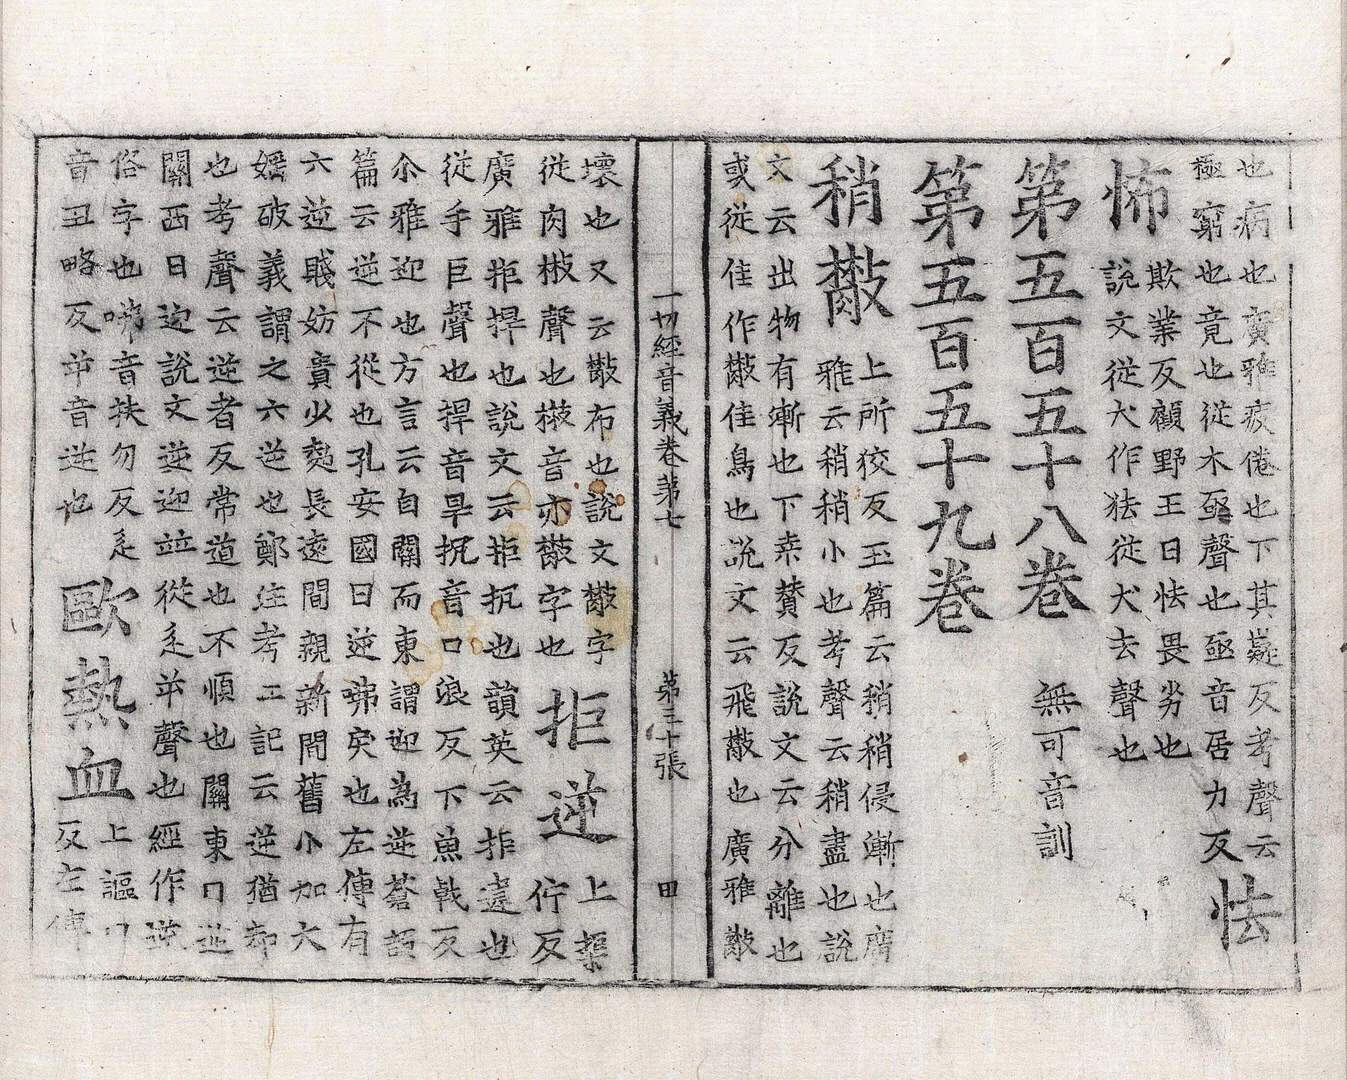 也病也廣雅疲倦也下其凝反考聲云
極窮也竟也從木亟聲也亟音居力反 怯
怖 欺業反顧野王曰怯畏劣也
說文從犬作㹤從犬去聲也
第五百五十八卷 無可音訓
第五百五十九卷
稍㪚 上所狡反玉篇云稍稍侵漸也廣
雅云稍稍小也考聲云稍盡也說
文云出物有漸也下桒贊反說文云分離也
或從隹作㪚隹鳥也說文云飛㪚也廣雅㪚
一切經音義卷第七 第三十張 田
壞也又云㪚布也說文㪚字
從肉㪔聲也㪔音亦㪚字也 拒逆 上渠
佇反
廣雅拒捍也說文云拒扼也韻英云拒違也
從手巨聲也捍音旱抳音口浪反下魚戟反
尒雅迎也方言云自關而東謂迎為逆蒼頡
篇云逆不從也孔安國曰逆咈戾也左傳有
六逆賤妨貴少㚄長遠間親新間舊小加大
婬破義謂之六逆也鄭注考工記云逆猶却
也考聲云逆者反常道也不順也關東曰逆
關西曰迎說文逆迎竝從辵屰聲也經作逆
俗字也咈音扶勿反辵
音丑略反屰音逆也 歐熱血 上謳口
反左傳